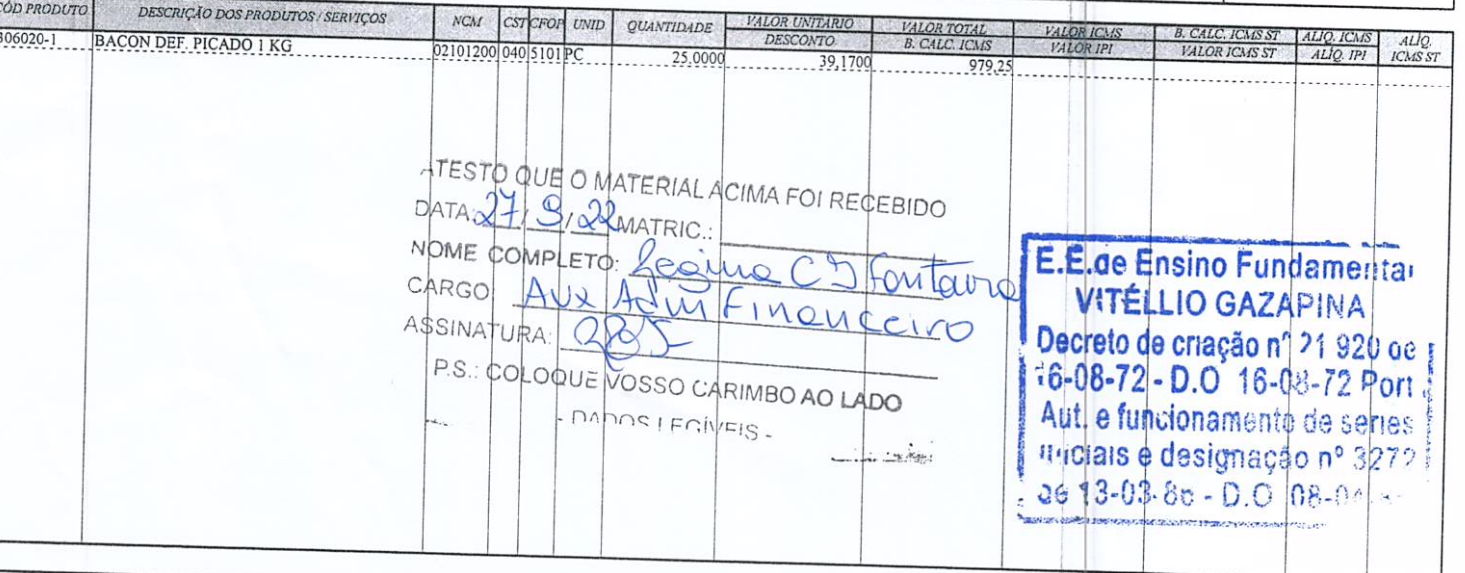 CÓD PRODUTO DESCRIÇÃO DOS PRODUTOS / SERVIÇOS NCM CST CFOP UNID QUANTIDADE VALOR UNITÁRIO VALOR TOTAL VALOR ICMS B. CALC. ICMS ST ALÍQ. ICMS ALÍQ. ICMS ST
DESCONTO B. CALC. ICMS VALOR IPI VALOR ICMS ST ALÍQ. IPI
306020-1 BACON DEF. PICADO 1 KG 02101200 040 5101 PC 25,0000 39,1700 979,25
ATESTO QUE O MATERIAL ACIMA FOI RECEBIDO
DATA: 27/9/22 MATRIC.:
NOME COMPLETO: Regina C Fontoura
CARGO Aux Adm Financeiro
ASSINATURA:
P.S.: COLOQUE VOSSO CARIMBO AO LADO
- DADOS LEGÍVEIS -
E.E. de Ensino Fundamental
VITÉLLIO GAZAPINA
Decreto de criação nº 21 920 de
16-08-72 - D.O 16-08-72 Port
Aut. e funcionamento de series
iniciais e designação nº 3272
de 13-03-80 - D.O